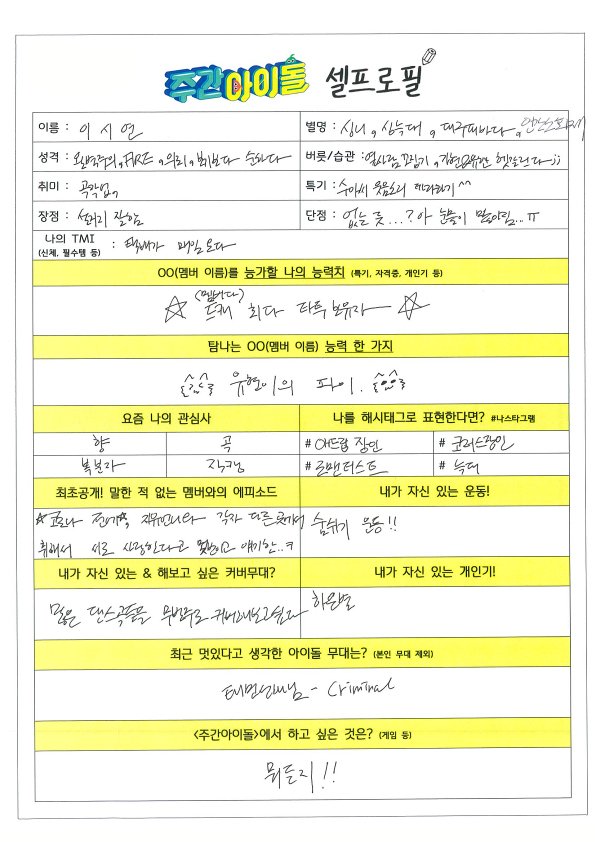 주간아이돌 셀프로필
이름 : 이시연
별명 : 싱니, 싱늑대, 대구피바다,
성격 : 완벽주의, FIRE, 의리, 보기보다 순하다
버릇/습관 :
취미 : 곡작업
특기 : 수아씨 웃음소리 따라하기^^
장점 : 설거리 잘함
단점 : 없는 듯...? 아 눈물이 많아짐...ㅠ
나의 TMI
(신체, 필수템 등) : 택배가 매일 온다
OO(멤버 이름)를 능가할 나의 능력치 (특기, 자격증, 개인기 등)
(멤버다)
드캐 최다 타투 보유자
탐나는 OO(멤버 이름) 능력 한 가지
유현이의 파이.
요즘 나의 관심사
나를 해시태그로 표현한다면? #나스타그램
향 곡 #애드립 장인 #코러스장인
복분자 작캠 #로맨티스트 #늑대
최초공개! 말한 적 없는 멤버와의 에피소드
내가 자신 있는 운동!
코로나 전에 지유언니와 각자 다른 곳에서
취해서 서로 사랑한다고 보고 얘기한..ㅋ
숨쉬기 운동!!
내가 자신 있는 & 해보고 싶은 커버무대?
내가 자신 있는 개인기!
많은 댄스곡들을 무반주로 커버해보고싶다
하은별
최근 멋있다고 생각한 아이돌 무대는? (본인 무대 제외)
태민선배님 - Criminal
<주간아이돌>에서 하고 싶은 것은? (게임 등)
뭐든지!!